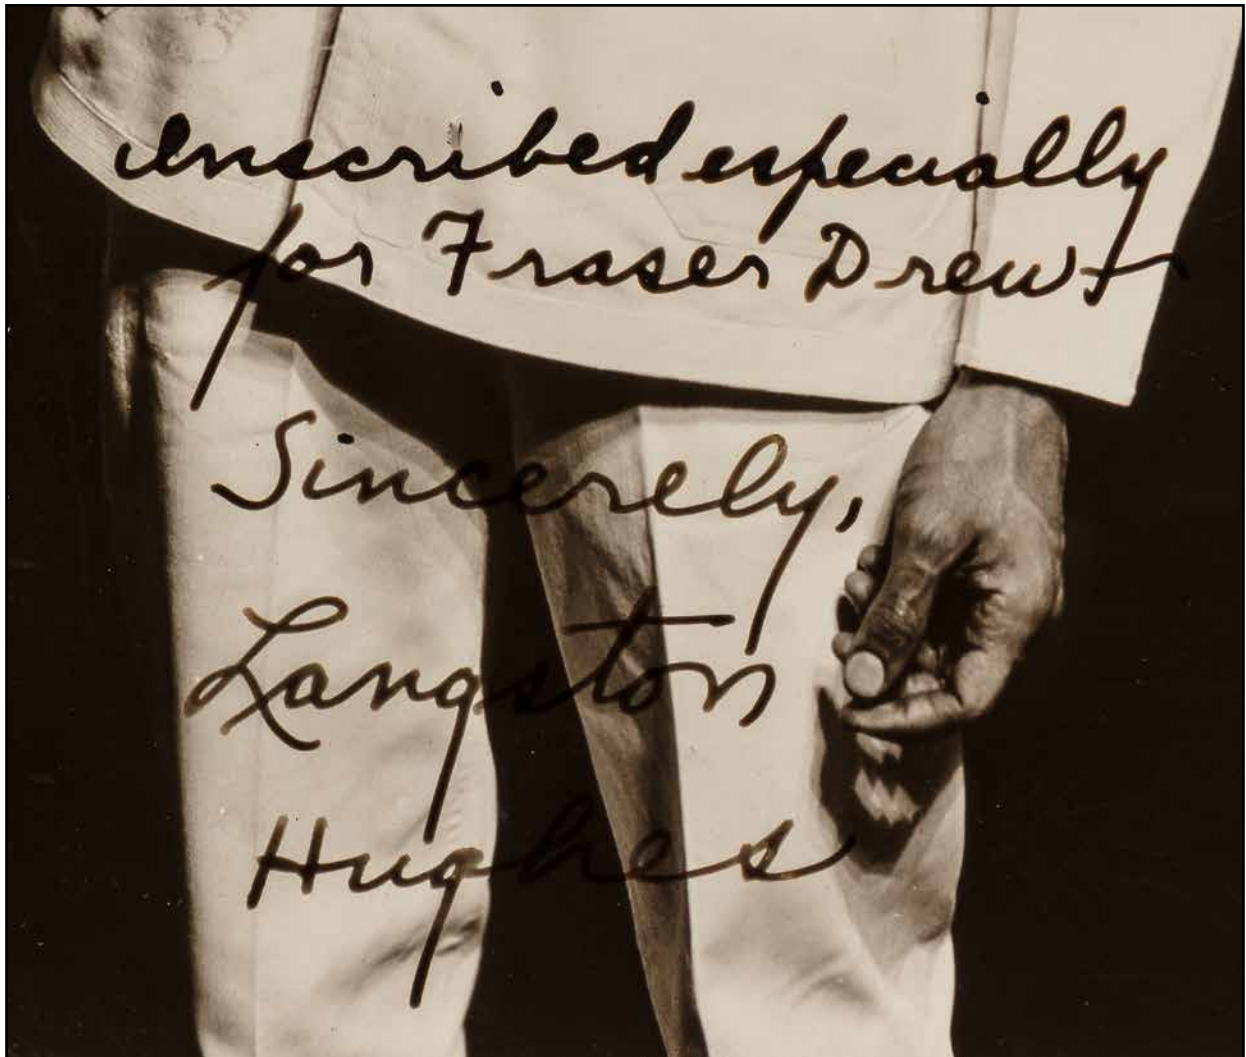 Inscribed especially
for Fraser Drew –
Sincerely,
Langston
Hughes